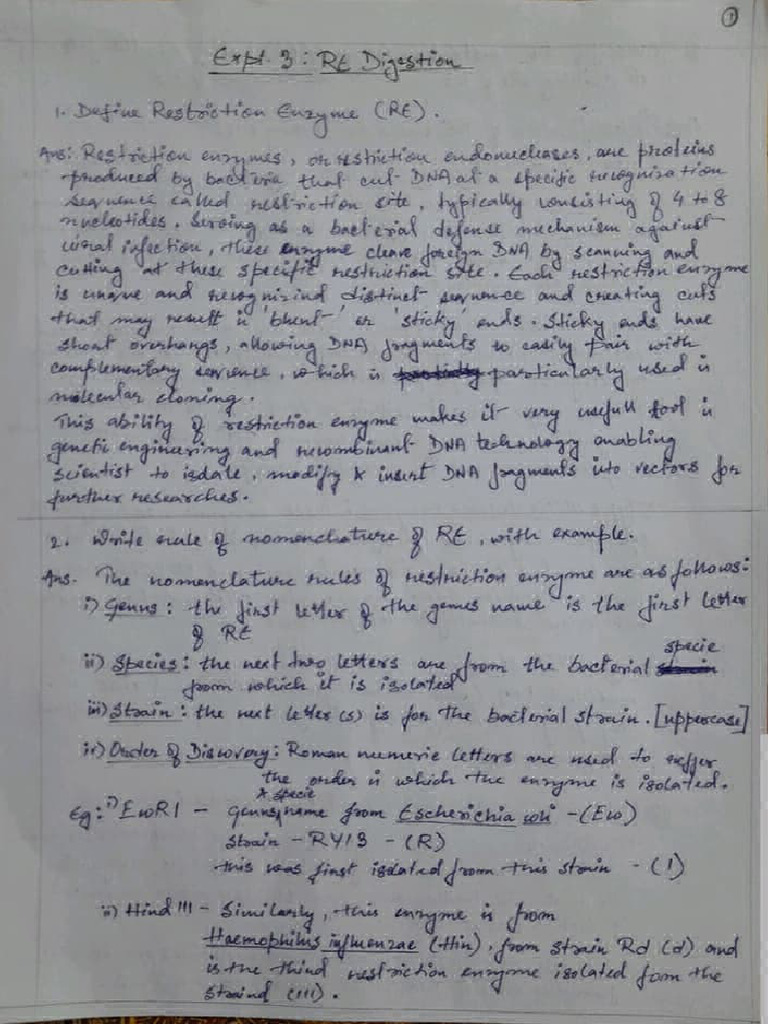 1
Expt. 3 : RE Digestion
1. Define Restriction Enzyme (RE).
Ans: Restriction enzymes, or restriction endonucleases, are proteins
produced by bacteria that cut DNA at a specific recognization
sequence called restriction site, typically consisting of 4 to 8
nucleotides. Serving as a bacterial defense mechanism against
viral infection, these enzyme cleave foreign DNA by scanning and
cutting at these specific restriction site. Each restriction enzyme
is unique and recognizind distinct sequence and creating cuts
that may result in 'blunt' or 'sticky' ends. Sticky ends have
short overhangs, allowing DNA fragments to easily pair with
complementary sequence, which is particularly used in
molecular cloning.
This ability of restriction enzyme makes it very usefull tool in
genetic engineering and recombinant DNA technology enabling
scientist to isolate, modify & insert DNA fragments into vectors for
further researches.
2. Write rule of nomenclature of RE, with example.
Ans. The nomenclature rules of restriction enzyme are as follows:
i) Genus : the first letter of the genus name is the first letter
of RE
ii) Species : the next two letters are from the bacterial specie
from which it is isolated
iii) Strain : the next letter(s) is for the bacterial strain. [uppercase]
iv) Order of Discovery : Roman numeric letters are used to reffer
the order in which the enzyme is isolated.
Eg: i) EcoRI - Genus & specie name from Escherichia coli - (Eco)
Strain - RY13 - (R)
this was first isolated from this strain - (I)
ii) Hind III - Similarly, this enzyme is from
Haemophilus influenzae (Hin), from strain Rd (d) and
is the third restriction enzyme isolated fom the
straind (III).